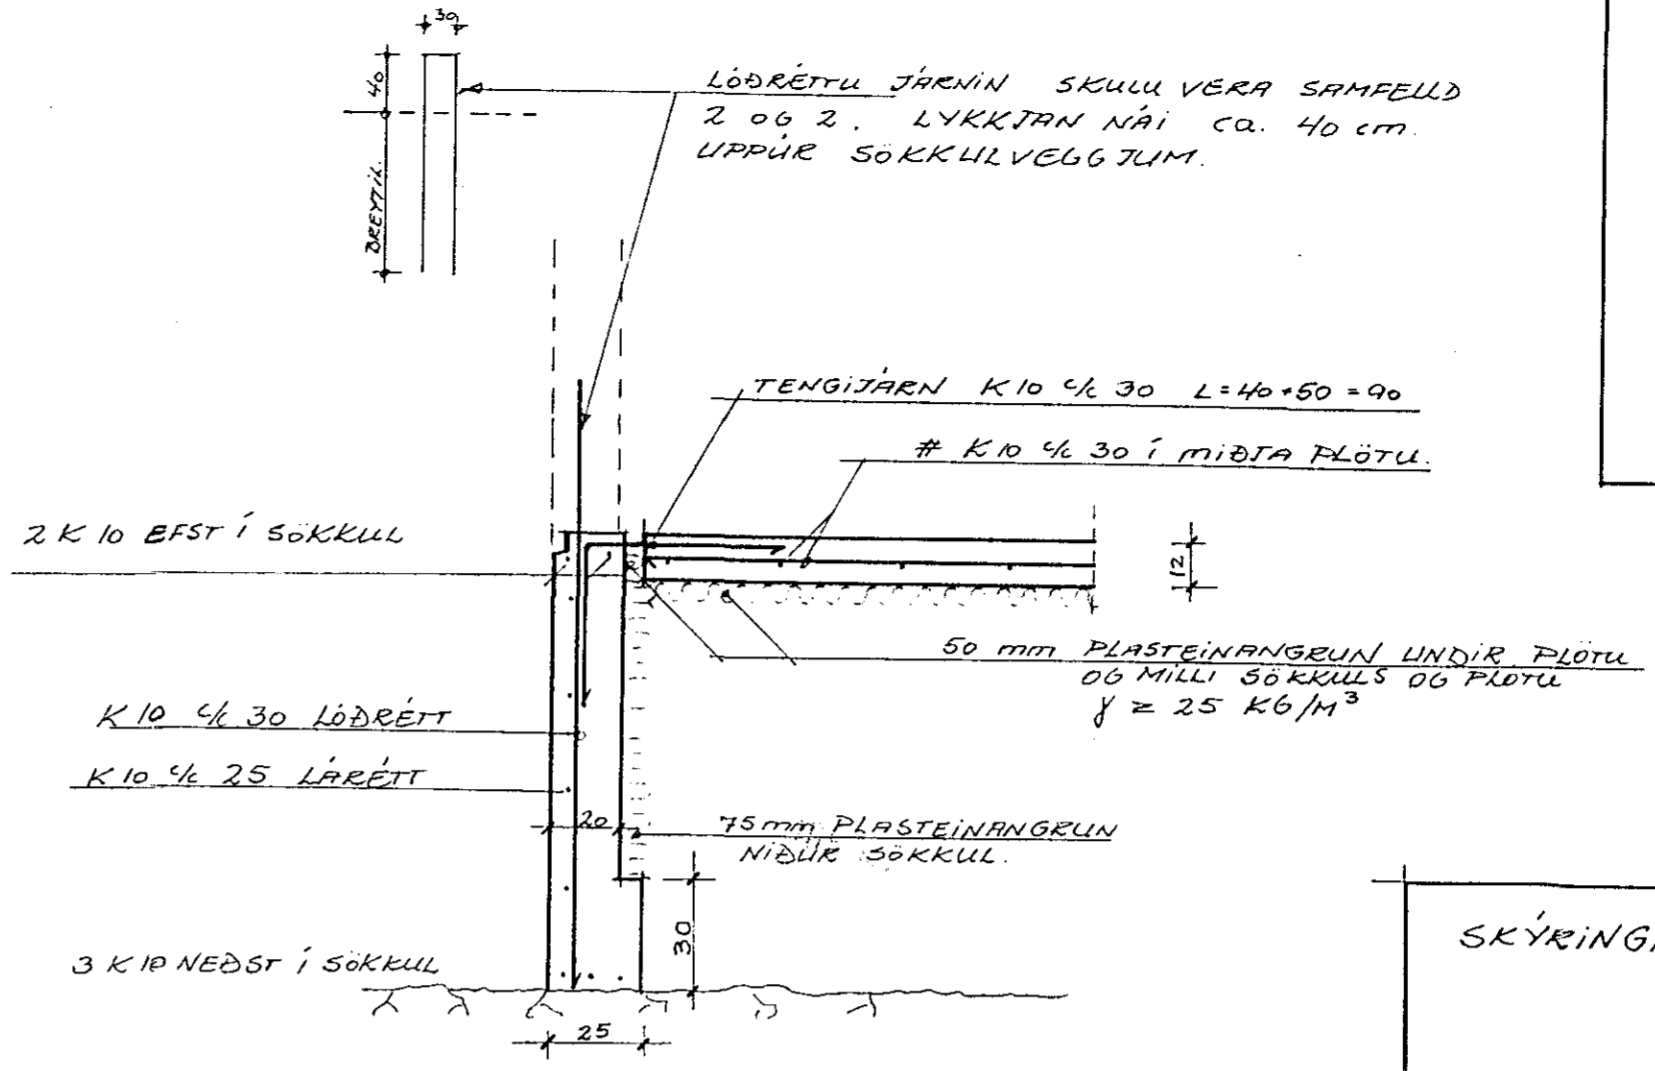 30
40
BREYTIL.
LÓÐRÉTTU JÁRNIN SKULU VERA SAMFELLD
2 OG 2. LYKKJAN NÁI ca. 40 cm.
UPPÚR SÖKKULVEGGJUM.
TENGIJÁRN K10 c/c 30 L=40+50=90
# K10 c/c 30 Í MIÐJA PLÖTU.
2 K 10 EFST Í SÖKKUL
12
50 mm PLASTEINANGRUN UNDIR PLÖTU
OG MILLI SÖKKULS OG PLÖTU
γ ≥ 25 KG/M³
K 10 c/c 30 LÓÐRÉTT
K 10 c/c 25 LÁRÉTT
20
75 mm PLASTEINANGRUN
NIÐUR SÖKKUL.
30
3 K 10 NEÐST Í SÖKKUL
25
SKÝRING